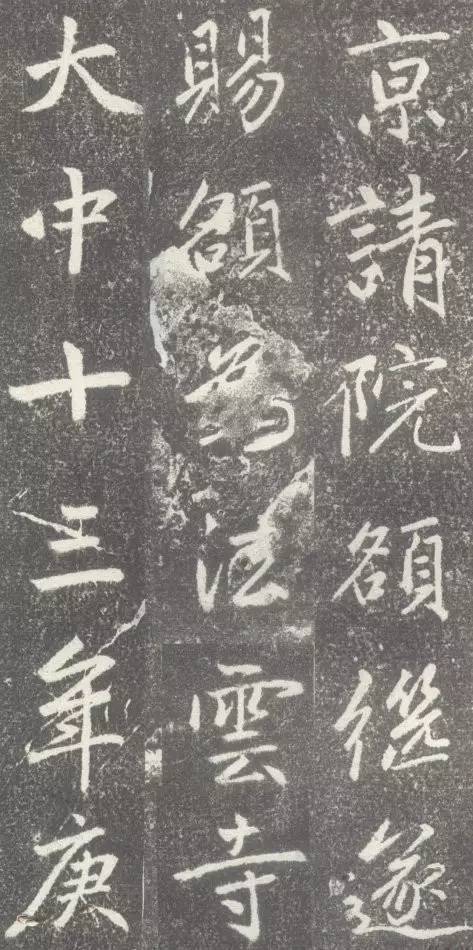 京請院額遂
賜額為法雲寺
大中十三年庚